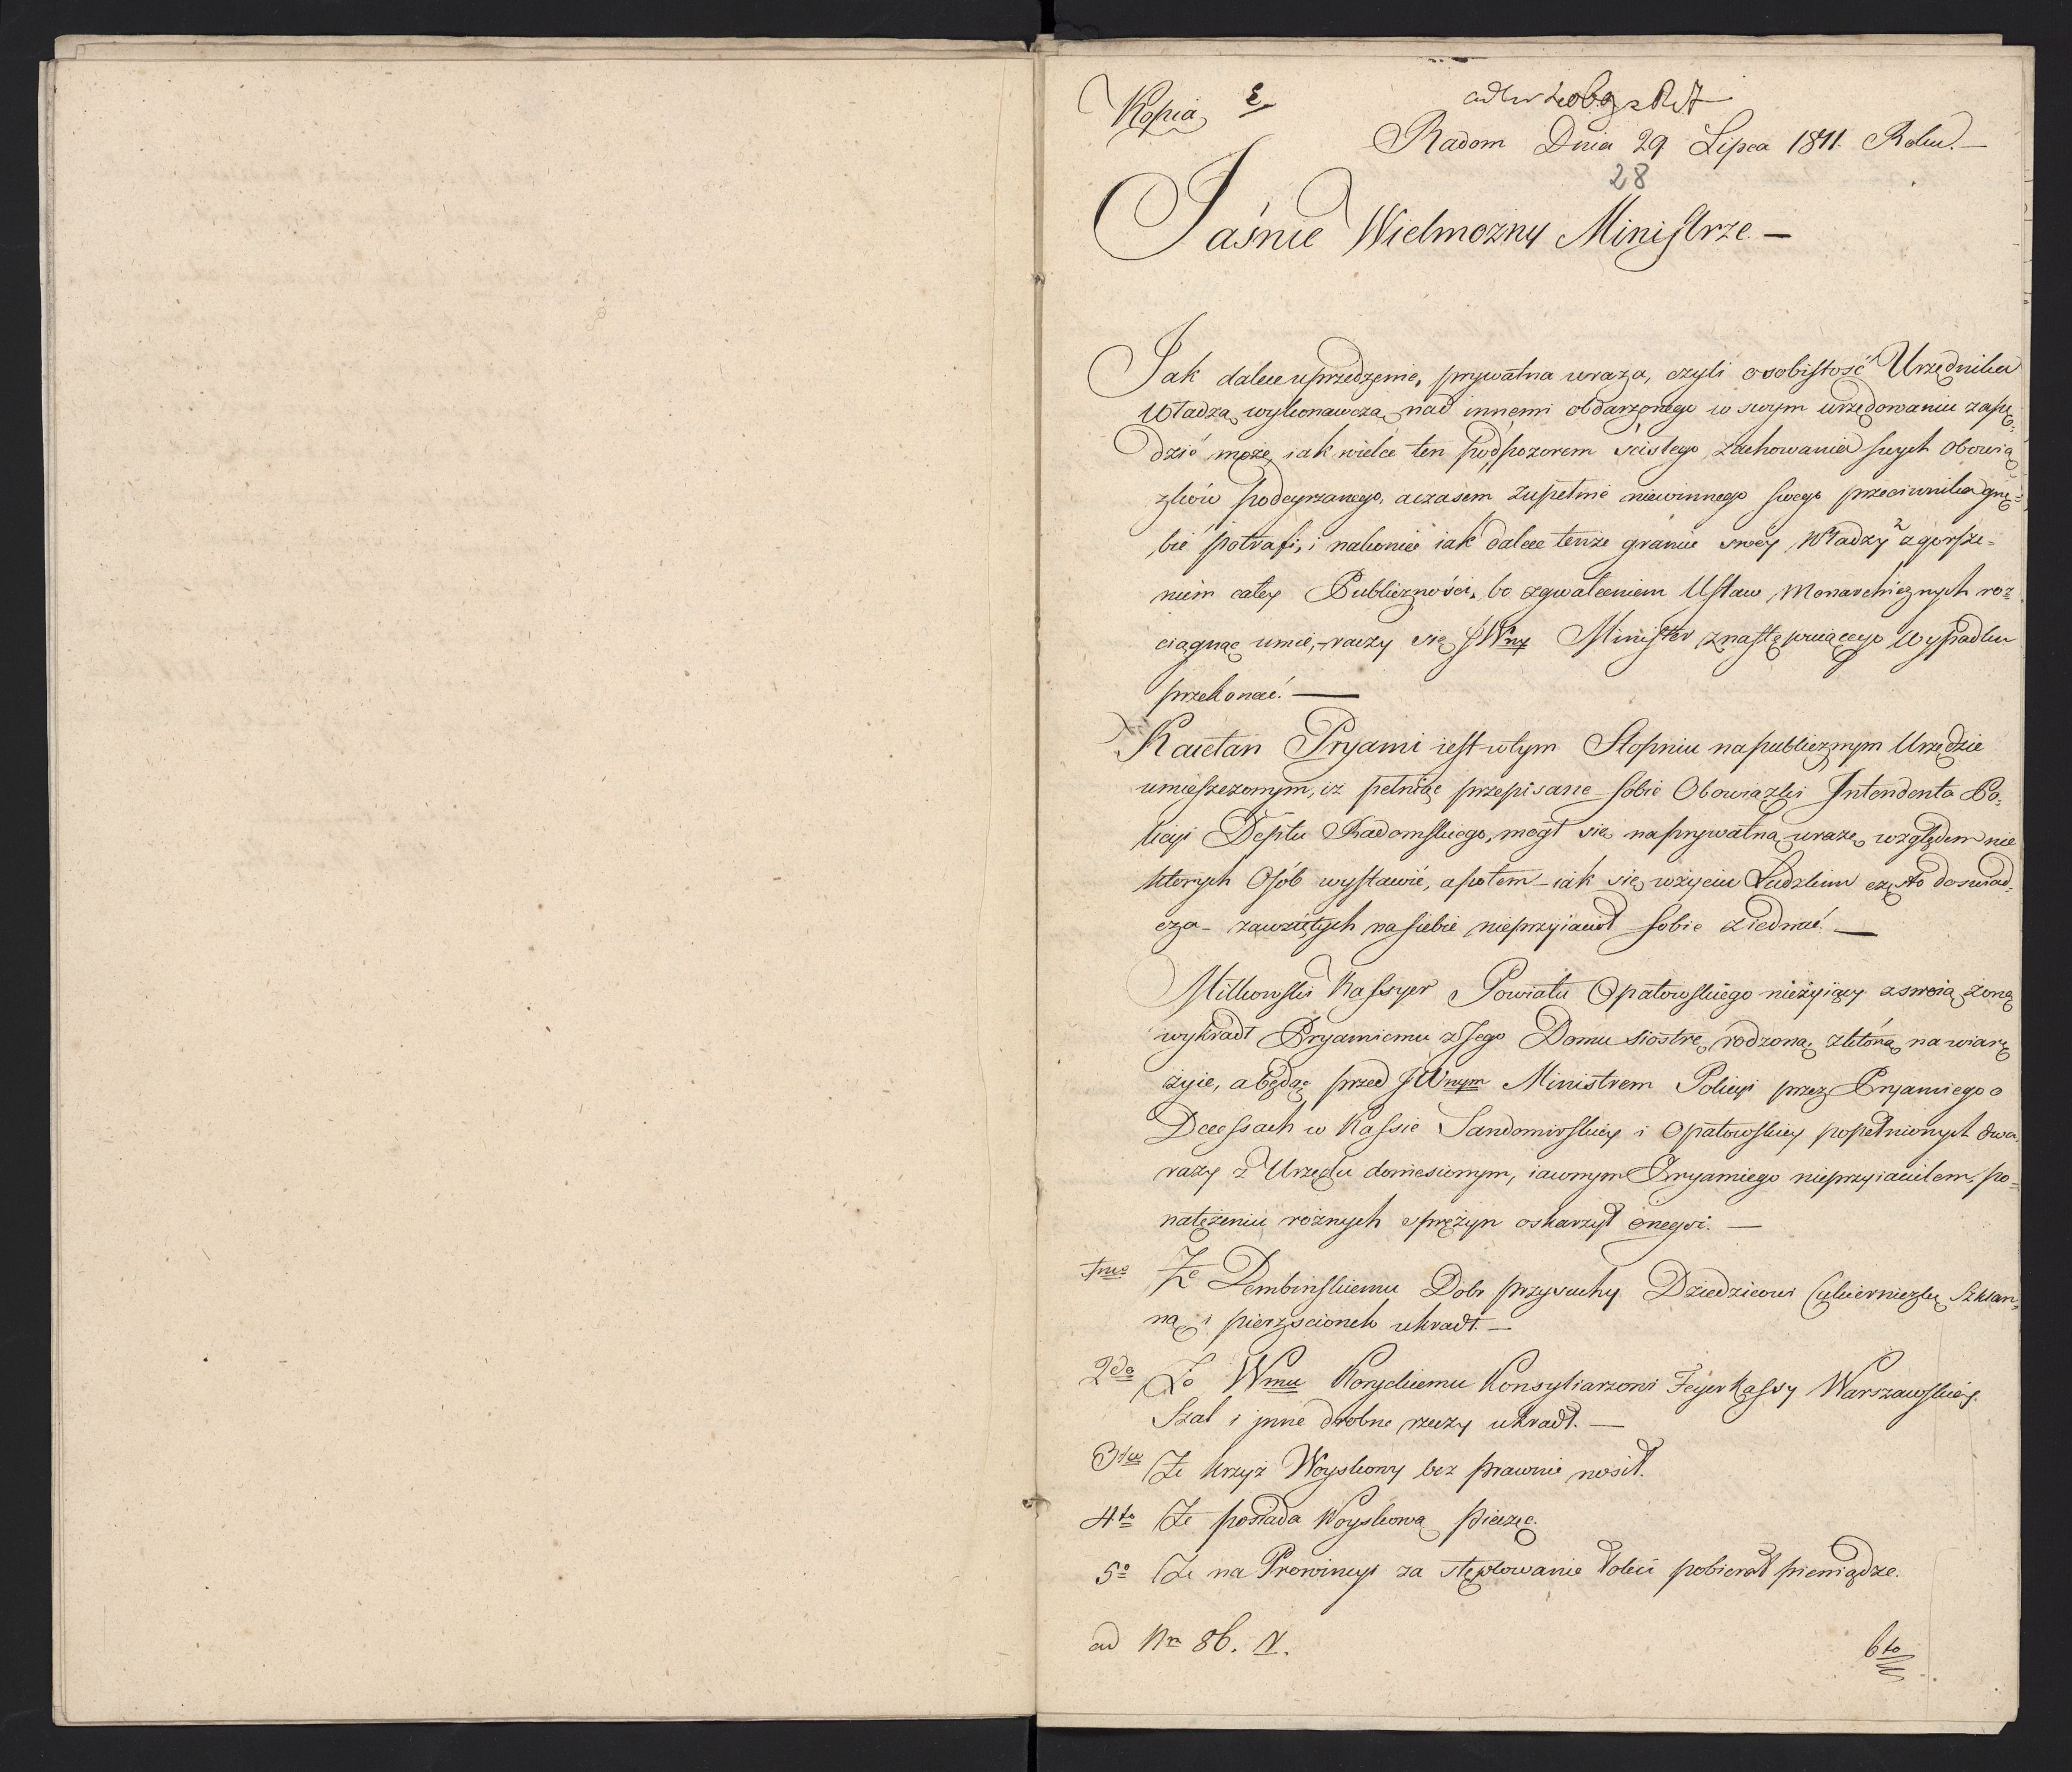 Kopia
Radom Dnia 29 Lipca 1811. Roku. —
28
Jaśnie Wielmożny Ministrze. —
Jak dalece uprzedzenie, prywatna uraza, czyli osobistość Urzędnika
Władzą wykonawczą nad innemi obdarzonego w swym urzędowaniu zapę=
dzić może, iak wielce ten pod pozorem ścisłego zachowania swych obowią=
zków podeyrzanego, a czasem zupełnie niewinnego swego przeciwnika gnę=
bić potrafi, i nakoniec iak dalece tenże granice swey Władzy z zgorsze=
niem całey Publiczności, bo zgwałceniem Ustaw Monarchicznych roz=
ciągnąć umie, – raczy się JWny Minister z następuiącego Wypadku
przekonać. —
Kaietan Pryami iest w tym Stopniu na publicznym Urzędzie
umieszczonym, iż pełniąc przepisane sobie Obowiązki Intendenta Po=
licyi Deptu Radomskiego, mógł się na prywatną urazę względem nie
których Osób wystawić, a potem – iak się w życiu Ludzkim często doświad=
cza – zawziętych na siebie nieprzyiaciół sobie ziednać. —
Mitkowski Kassyer Powiatu Opatowskiego nieżyiący z swoią żoną
wykradł Pryamiemu z Jego Domu siostrę rodzoną, z którą na wiarę
żyie, a będąc przed JWnym Ministrem Policyi przez Pryamiego o
w Kassie Sandomirskiey i Opatowskiey popełnionych dwa
razy z Urzędu doniesionym, iawnym Pryamiego nieprzyiacielem, po=
natężeniu różnych sprężyn oskarżył onegoż. —
1mo Że Dembinskiemu Dobr Przysuchy Dziedzicowi Cukierniczkę Szklan=
ną i pierzścionek ukradł. —
2do Że Wmu Koryckiemu Konsyliarzowi Feyer Kassy Warszawskiey.
Szal i jnne drobne rzeczy ukradł. —
3tio Że krzyż Woyskowy bez prawnie nosił.
4to Że posiada Woyskową pieczęć.
5o Że na Prowincyi za stęplowanie łokci pobierał pieniądze.
ad Nr 86. N.
6to